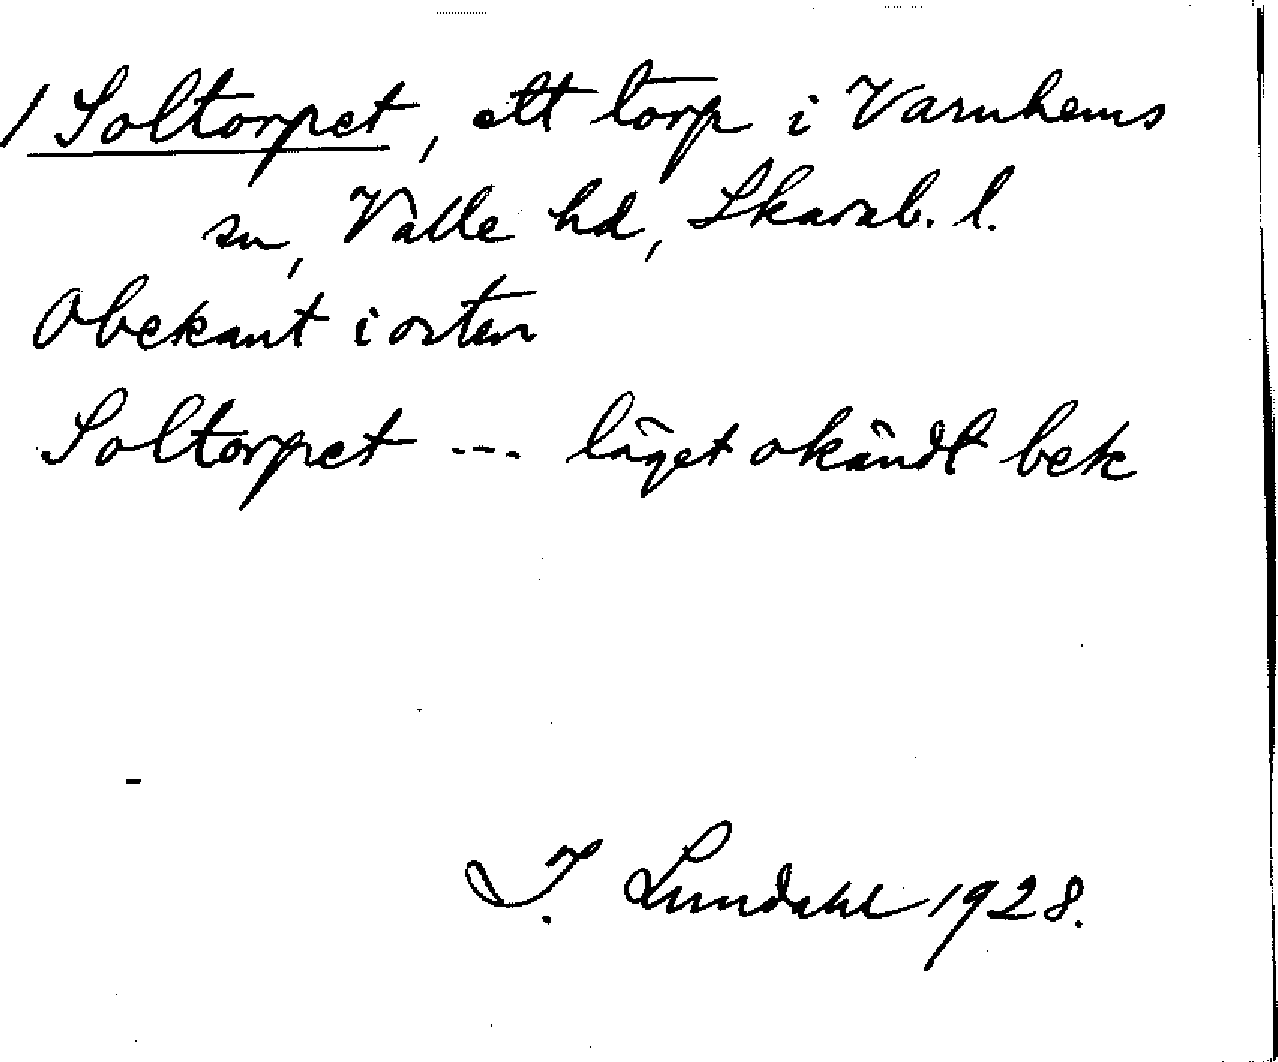 / Soltorpet, ett torp i Varnhems
sn, Valle hd, Skarab. l.
Obekant i orten
Soltorpet --- läget okändt bek
I. Lundahl 1928.